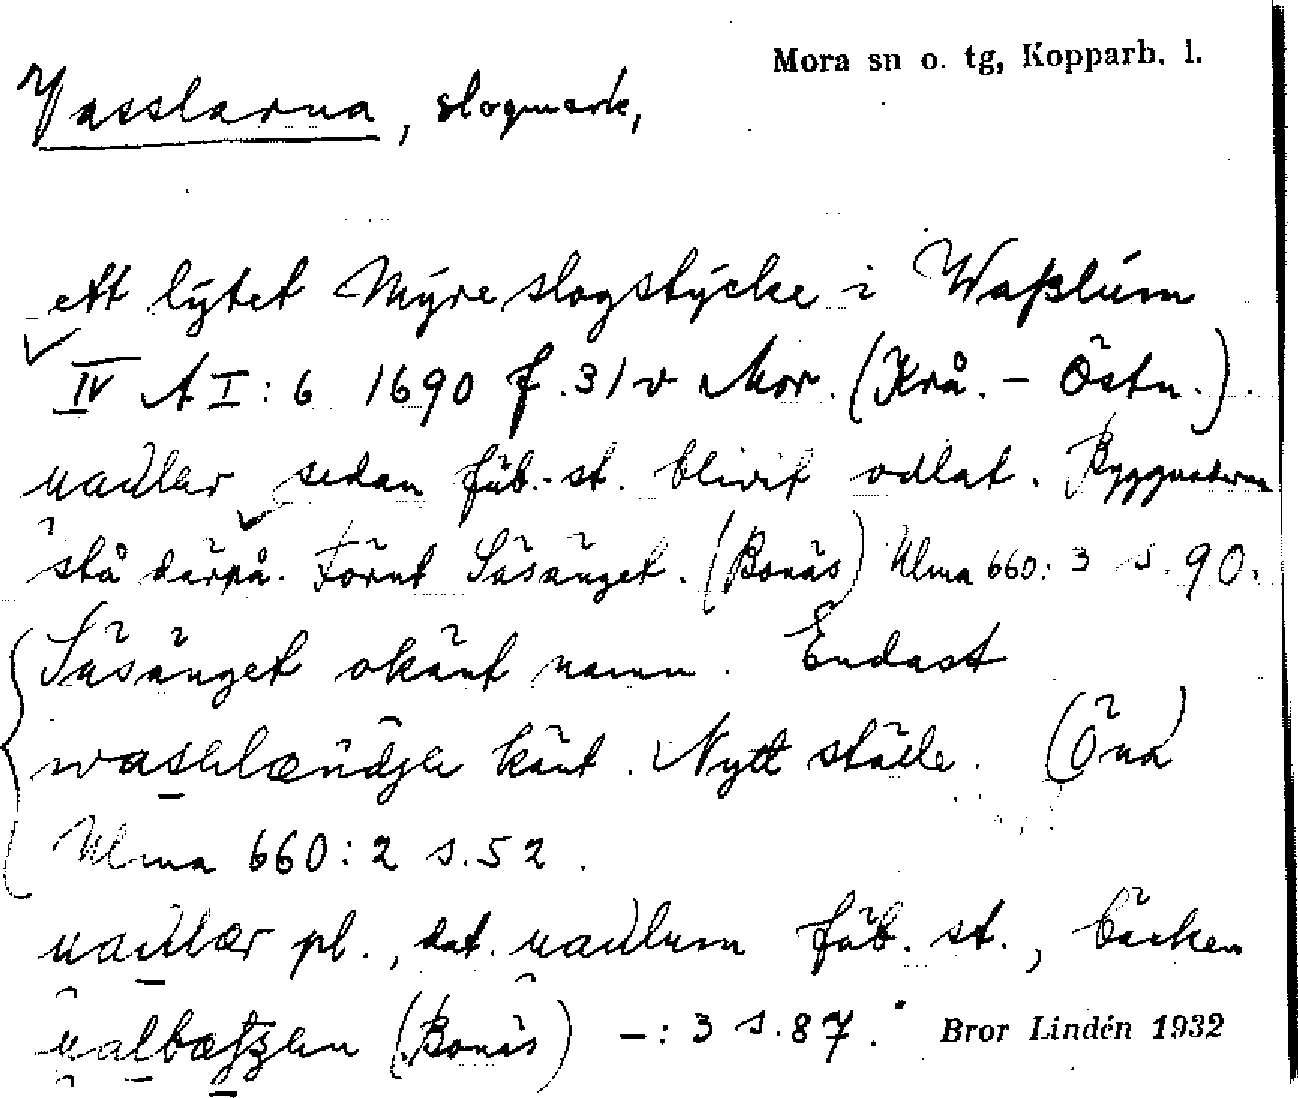 Mora sn o. tg, Kopparb. l.
Vasslarna, slogmark,
ett lÿtet Mÿre slogstÿcke i Waßlúm
IV A I: 6 1690 f. 31 v Mor. (Krå. – Östn.).
sedan fäb.-st. blivit odlat. Byggnaderna
stå därpå. Förut Säsänget. (Bonäs) Ulma 660: 3 s. 90.
Säsänget okänt namn. Endast
känt. Nytt ställe. (Öna)
Ulma 660: 2 s. 52.
pl., dat. fäb. st., bäcken
(Bonäs) –: 3 s. 87. Bror Lindén 1932